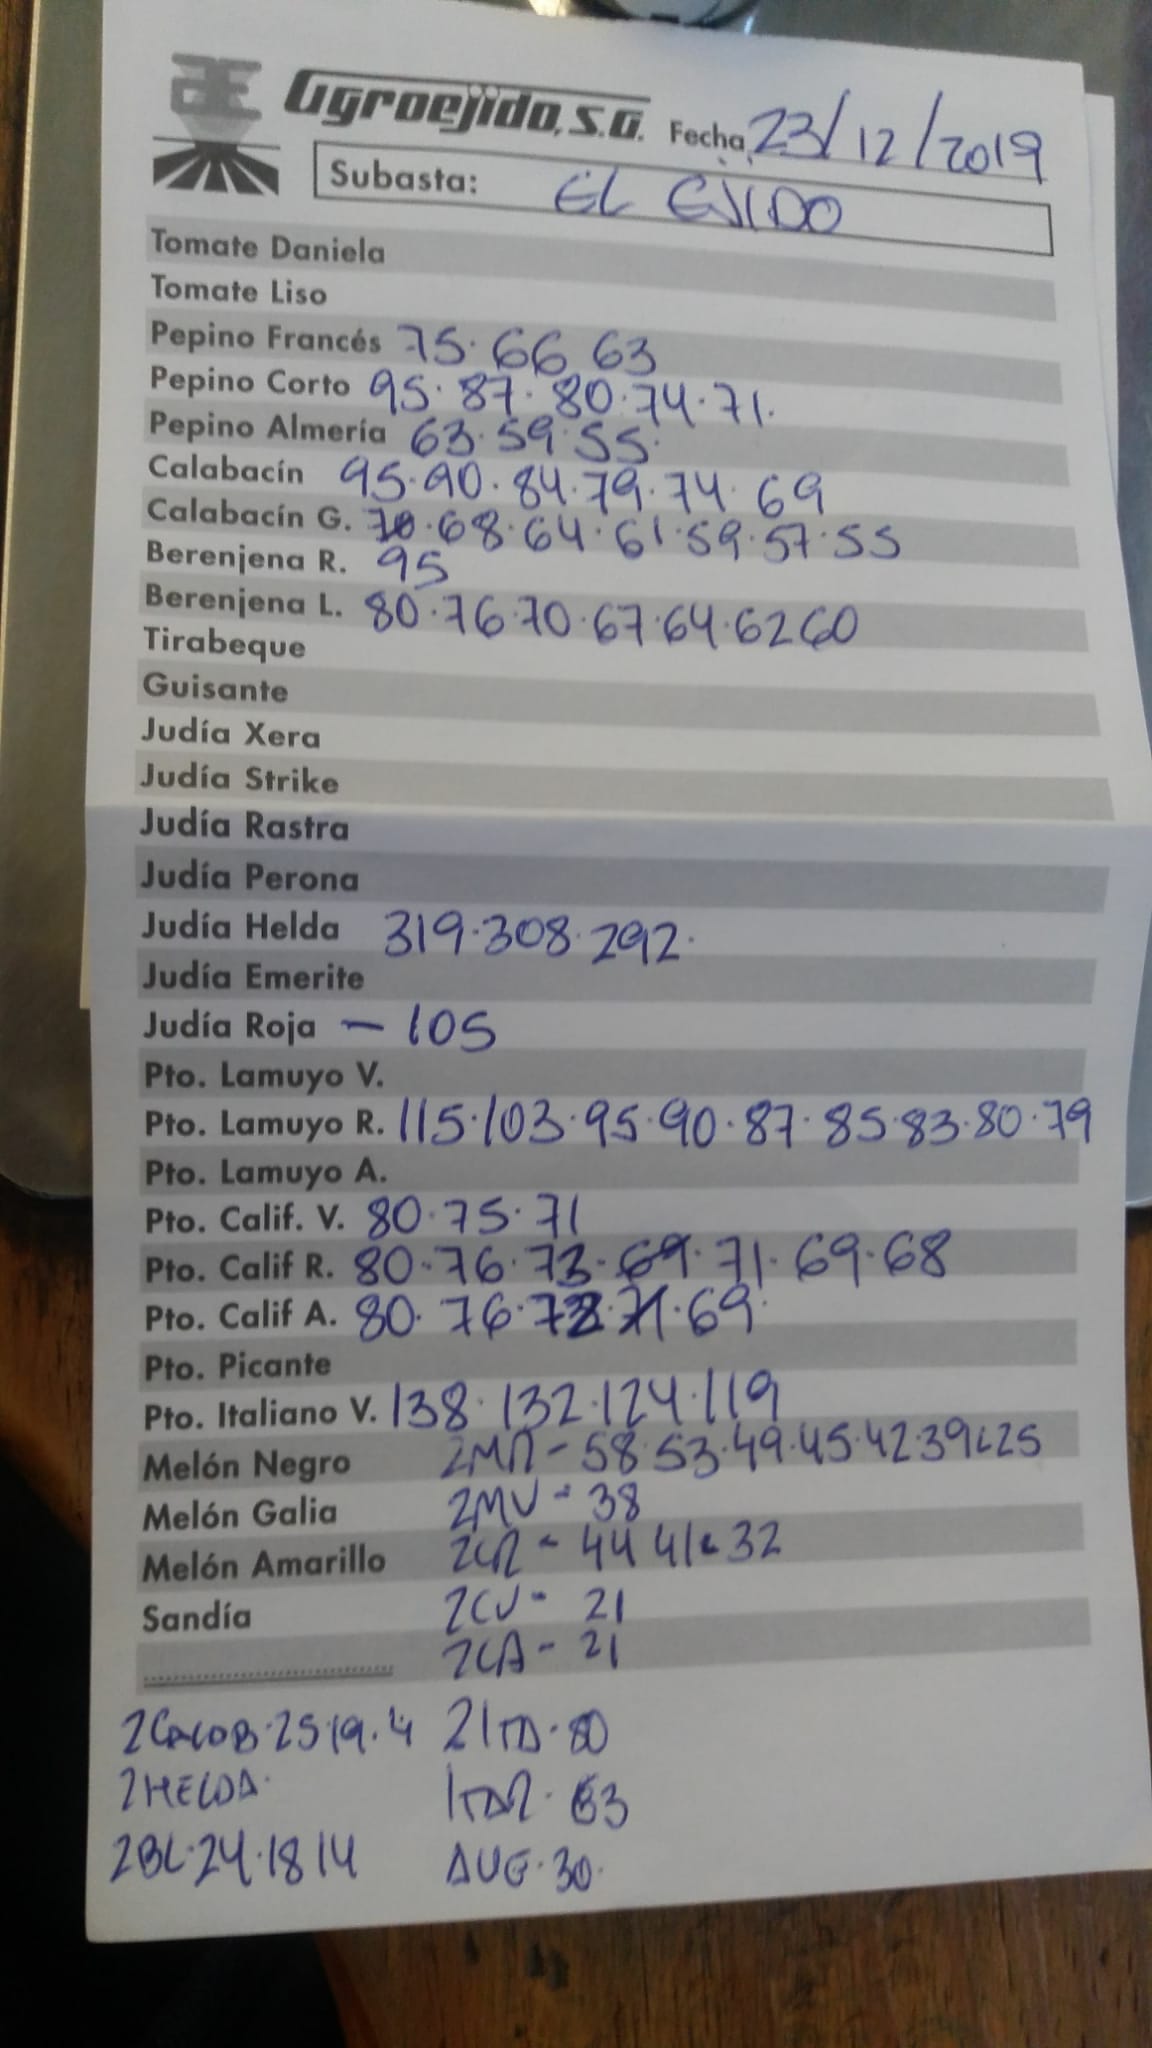 Agroejido, S.A. Fecha 23/12/2019
Subasta: EL EJIDO
Tomate Daniela
Tomate Liso
Pepino Francés 75. 66 63
Pepino Corto 95. 87. 80. 74. 71.
Pepino Almería 63. 59. 55.
Calabacín 95. 90. 84. 79. 74. 69
Calabacín G. 70. 68. 64. 61. 59. 57. 55
Berenjena R. 95
Berenjena L. 80. 76. 70. 67. 64. 62 60
Tirabeque
Guisante
Judía Xera
Judía Strike
Judía Rastra
Judía Perona
Judía Helda 319. 308. 292.
Judía Emerite
Judía Roja - 105
Pto. Lamuyo V.
Pto. Lamuyo R. 115. 103. 95. 90. 87. 85. 83. 80. 79
Pto. Lamuyo A.
Pto. Calif. V. 80. 75. 71
Pto. Calif R. 80. 76. 73. 71. 69. 68
Pto. Calif A. 80. 76. 71. 69.
Pto. Picante
Pto. Italiano V. 138. 132. 124. 119
Melón Negro 2MR - 58. 53. 49. 45. 42 39 25
Melón Galia 2MV - 38
Melón Amarillo 2CR - 44 41 32
Sandía 2CV - 21
2CA - 21
2CALAB. 25 19. 4 2ITA. 80
2HELDA. ITAR. 63
2BL. 24. 18 14 AUG. 30.